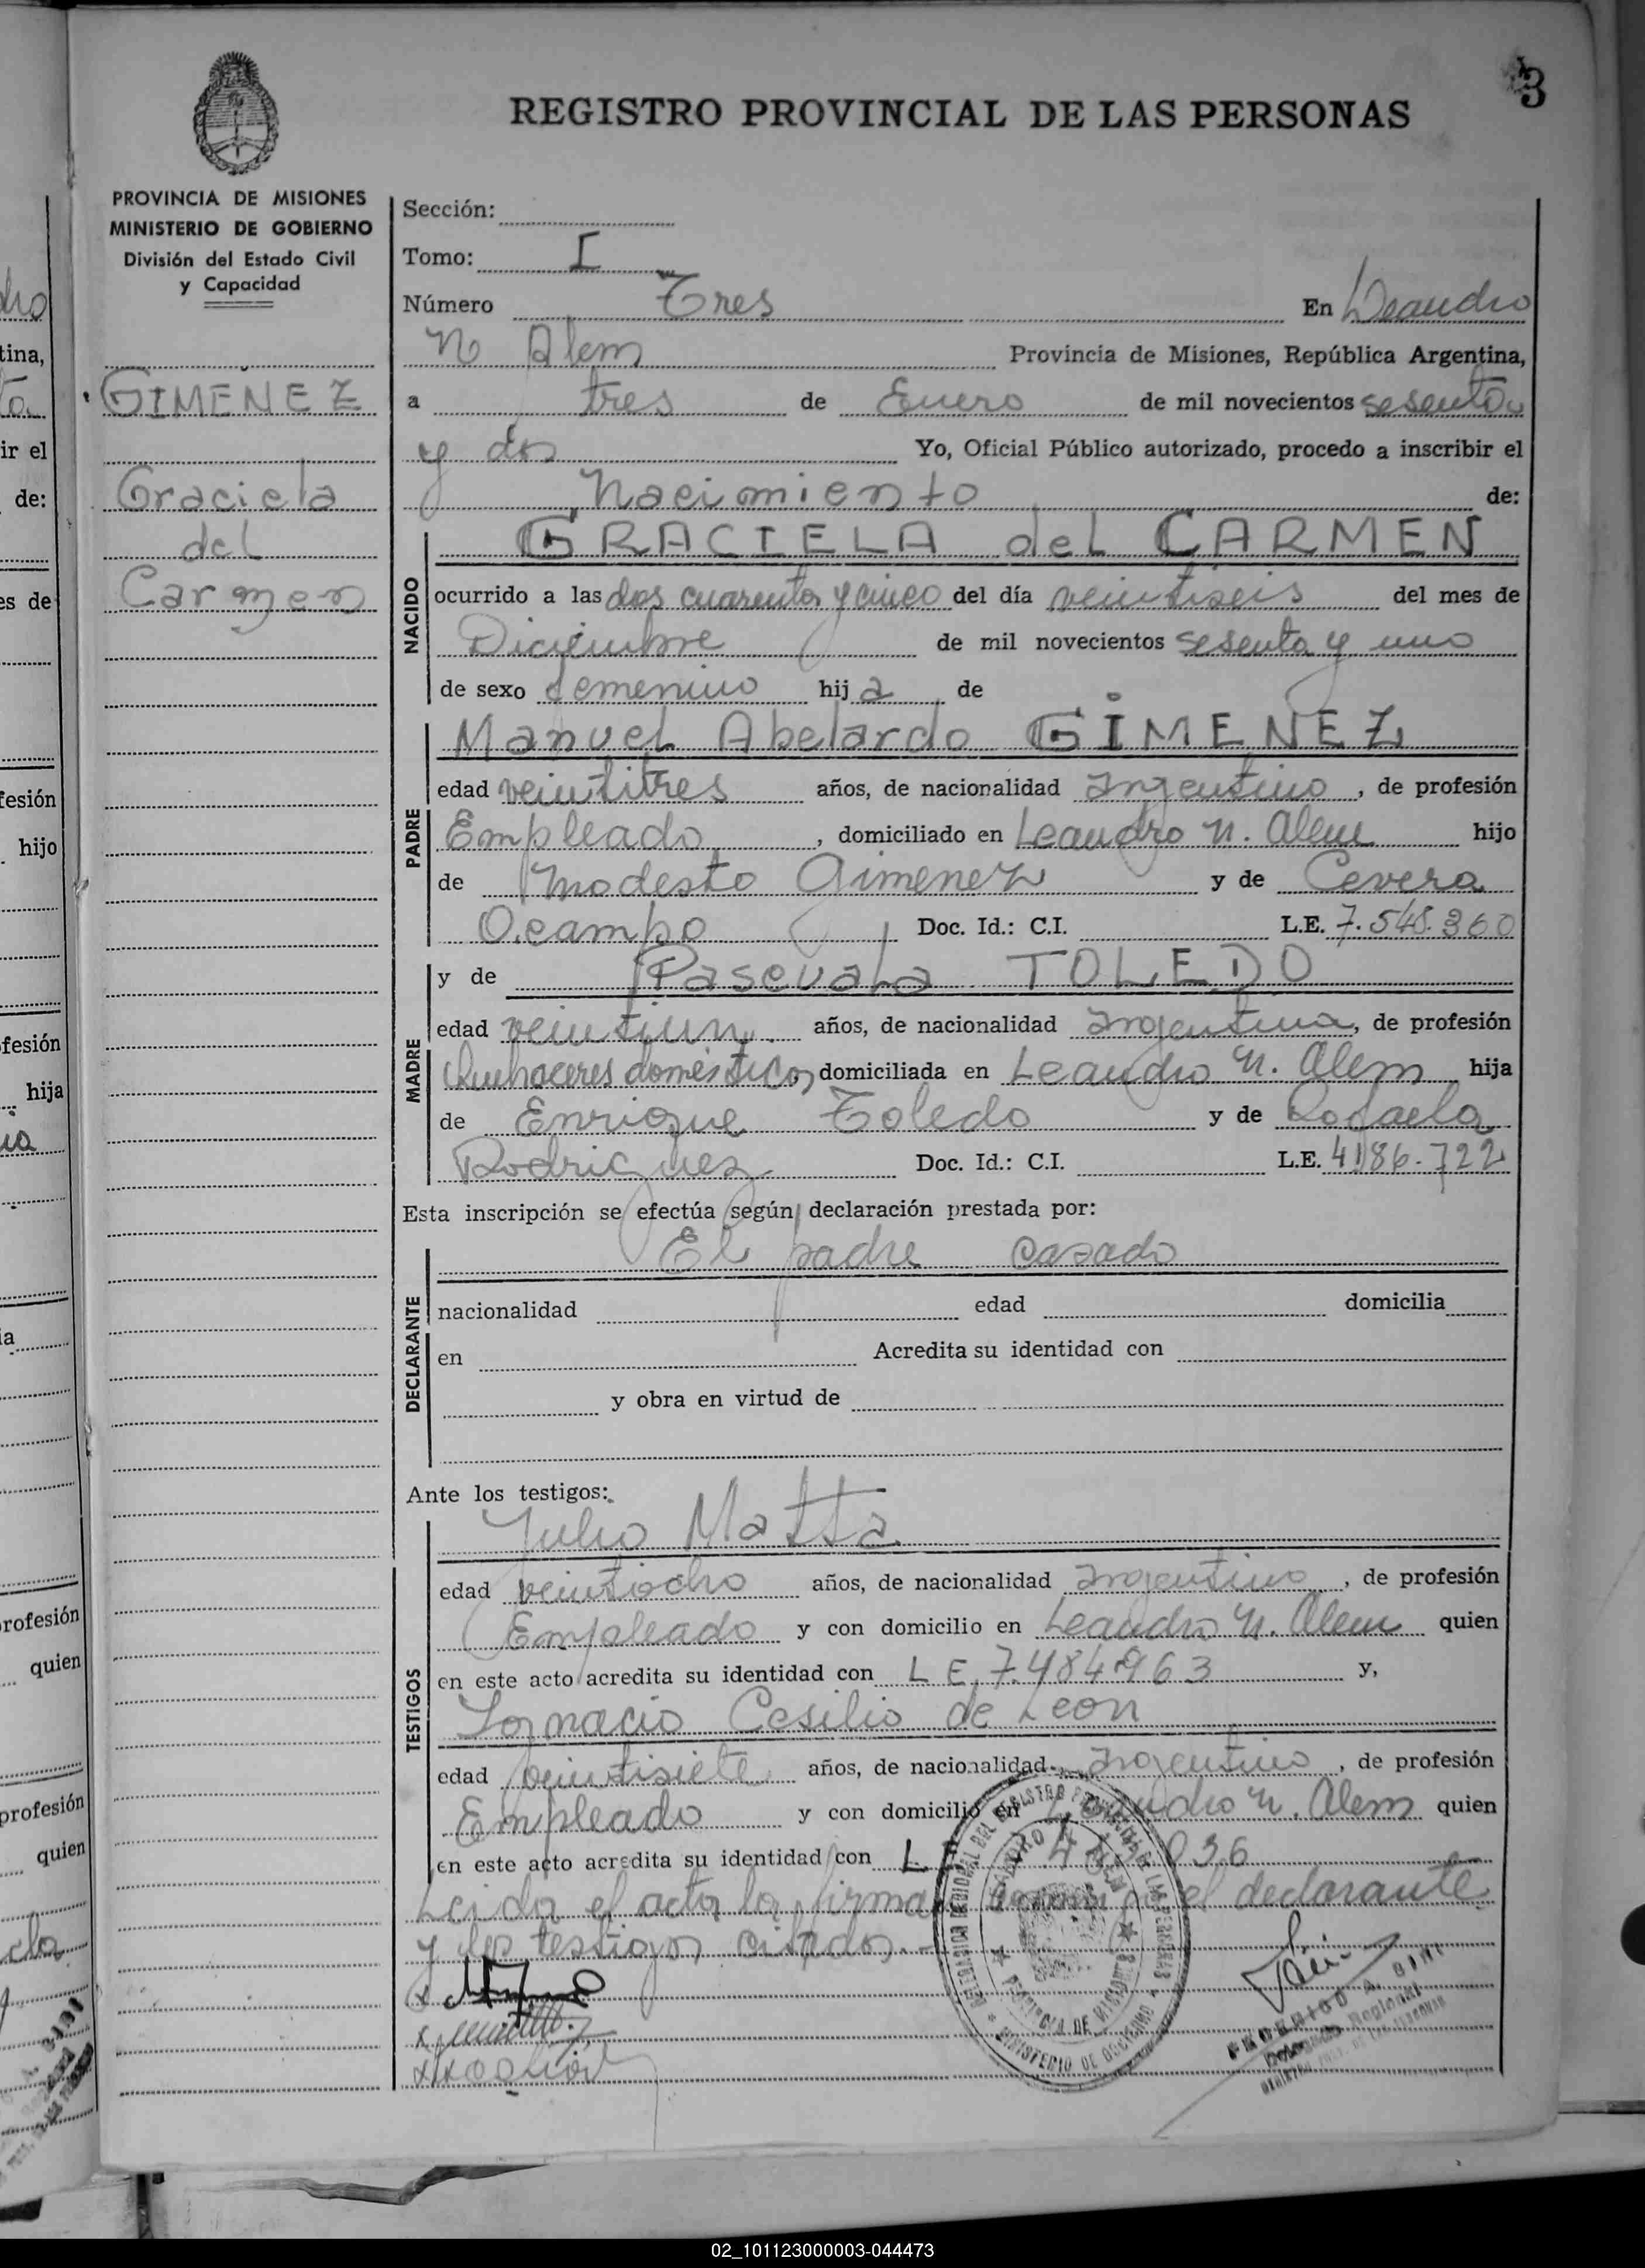 3
REGISTRO PROVINCIAL DE LAS PERSONAS
PROVINCIA DE MISIONES
MINISTERIO DE GOBIERNO
División del Estado Civil
y Capacidad
GIMENEZ
Graciela
del
Carmen
Sección:
Tomo: I
Número Tres En Leandro
N Alem Provincia de Misiones, República Argentina,
a tres de Enero de mil novecientos sesenta
y dos Yo, Oficial Público autorizado, procedo a inscribir el
Nacimiento de:
NACIDO
GRACIELA del CARMEN
ocurrido a las dos cuarenta y cinco del día veintiseis del mes de
Diciembre de mil novecientos sesenta y uno
de sexo femenino hija de
PADRE
Manuel Abelardo GIMENEZ
edad veintitres años, de nacionalidad argentino, de profesión
Empleado, domiciliado en Leandro N. Alem hijo
de Modesto Gimenez y de Cevera
Ocampo Doc. Id.: C.I. L.E. 7.548.360
MADRE
y de Pascuala TOLEDO
edad veintiun años, de nacionalidad argentina, de profesión
Quehaceres domésticos, domiciliada en Leandro N. Alem hija
de Enrique Toledo y de Rafaela
Rodriguez Doc. Id.: C.I. L.E. 4186.722
Esta inscripción se efectúa según declaración prestada por:
DECLARANTE
El padre casado
nacionalidad edad domicilia
en Acredita su identidad con
y obra en virtud de
Ante los testigos:
TESTIGOS
Julio Matta
edad veintiocho años, de nacionalidad argentino, de profesión
Empleado y con domicilio en Leandro N. Alem quien
en este acto acredita su identidad con L E. 7.484963 y,
Ignacio Cesilio de Leon
edad veintisiete años, de nacionalidad argentino, de profesión
Empleado y con domicilio en Leandro N. Alem quien
en este acto acredita su identidad con L 036
Leida el acta la firman el declarante
y los testigos citados.-
MINISTERIO DE GOBIERNO
PROVINCIA DE MISIONES
Regional
02_101123000003-044473